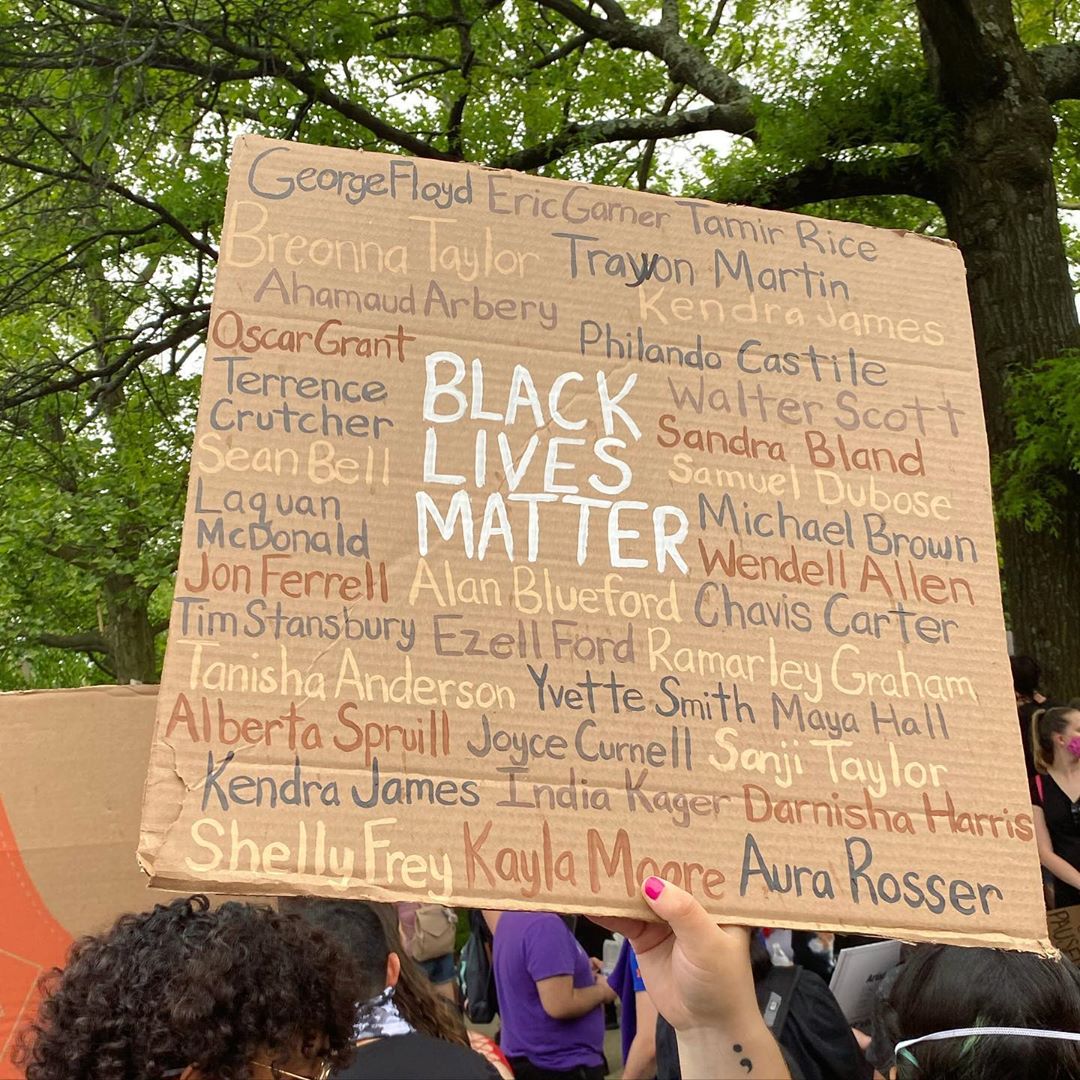 George Floyd Eric Garner Tamir Rice
Breonna Taylor Trayvon Martin
Ahamaud Arbery Kendra James
Oscar Grant Philando Castile
Terrence
Crutcher
Walter Scott
Sandra Bland
Sean Bell
Samuel Dubose
BLACK
LIVES
MATTER
Laquan
McDonald
Michael Brown
Wendell Allen
Jon Ferrell Alan Blueford Chavis Carter
Tim Stansbury Ezell Ford Ramarley Graham
Tanisha Anderson Yvette Smith Maya Hall
Alberta Spruill Joyce Curnell Sanji Taylor
Kendra James India Kager Darnisha Harris
Shelly Frey Kayla Moore Aura Rosser